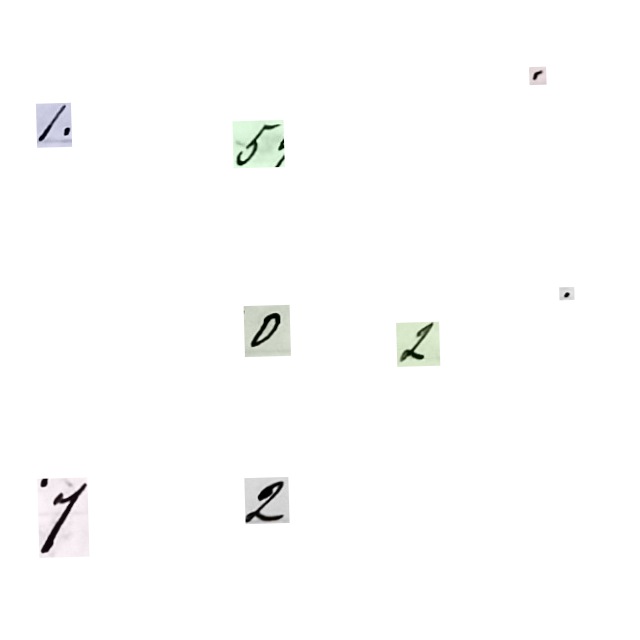 1. 5
0 2 .
7 2